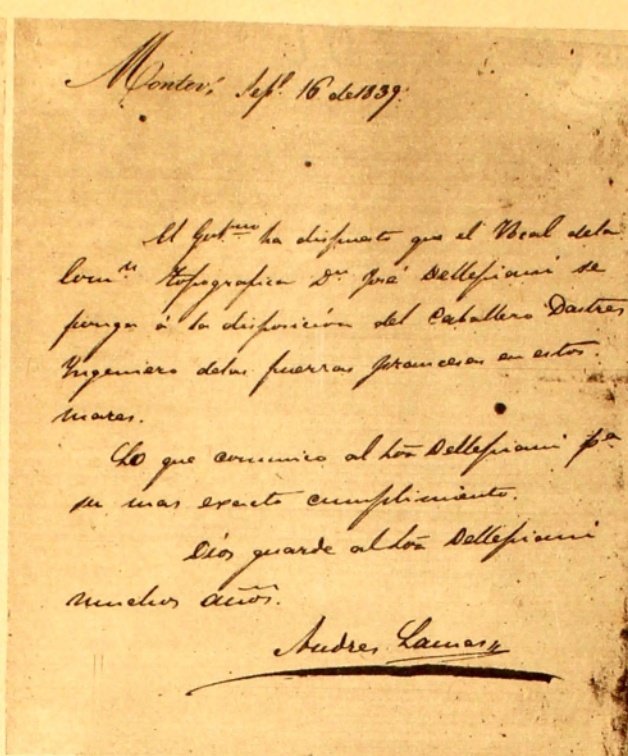 Montevo Sepe. 16 de 1839.
El Gobno ha dispuesto que el Vocal dela
Comn. Topografica Dn José Dellepiani se
ponga á la disposición del Caballero Dastres
Ingeniero delas fuerzas francesas en estos
mares.
Lo que comunico al Sor Dellepiani pa
su mas exacto cumplimiento.
Dios guarde al Sor Dellepiani
muchos años.
Andres Lamas